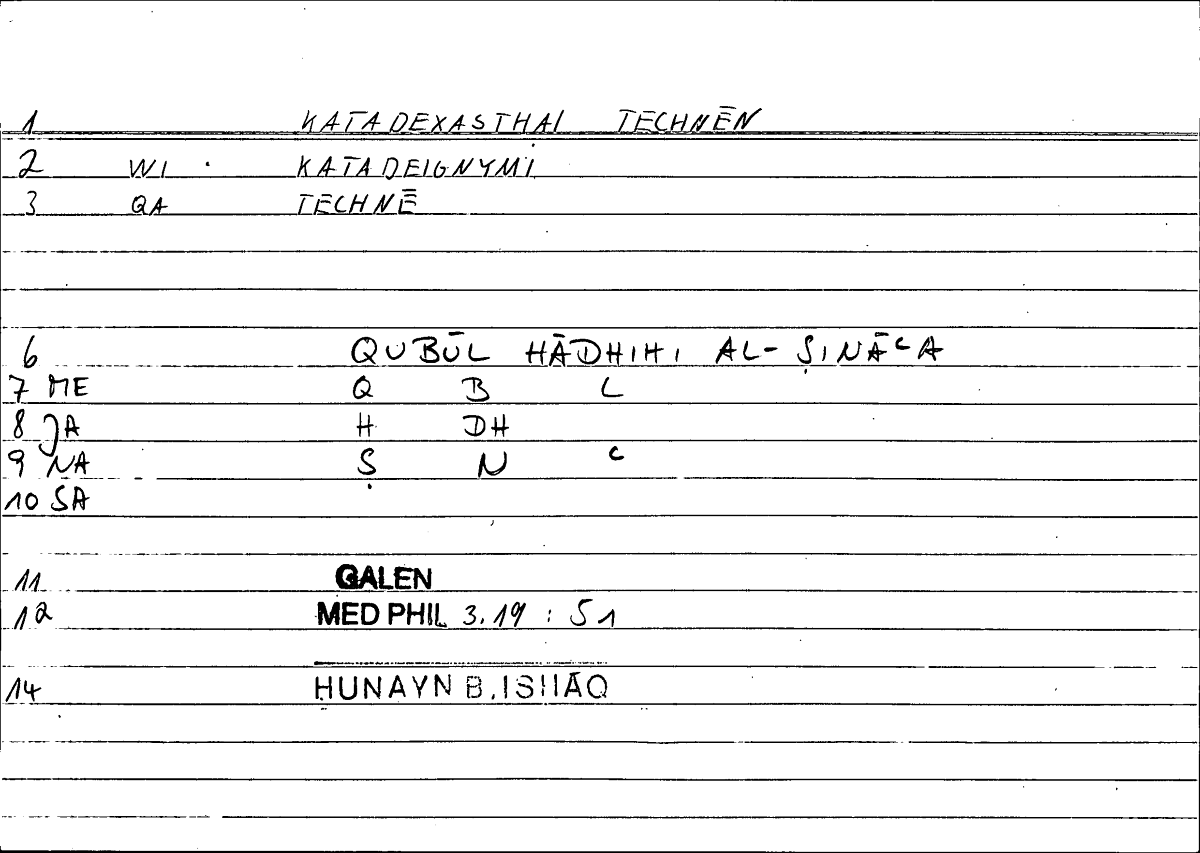 1 KATADEXASTHAI TECHNĒN
2 WI KATADEIGNYMI
3 QA TECHNĒ
6 QUBŪL HĀDHIHI AL-ṢINĀᶜA
7 ME Q B L
8 JA H DH
9 NA Ṣ N ᶜ
10 SA
11 GALEN
12 MED PHIL 3.19 : 51
14 ḤUNAYN B. ISḤĀQ